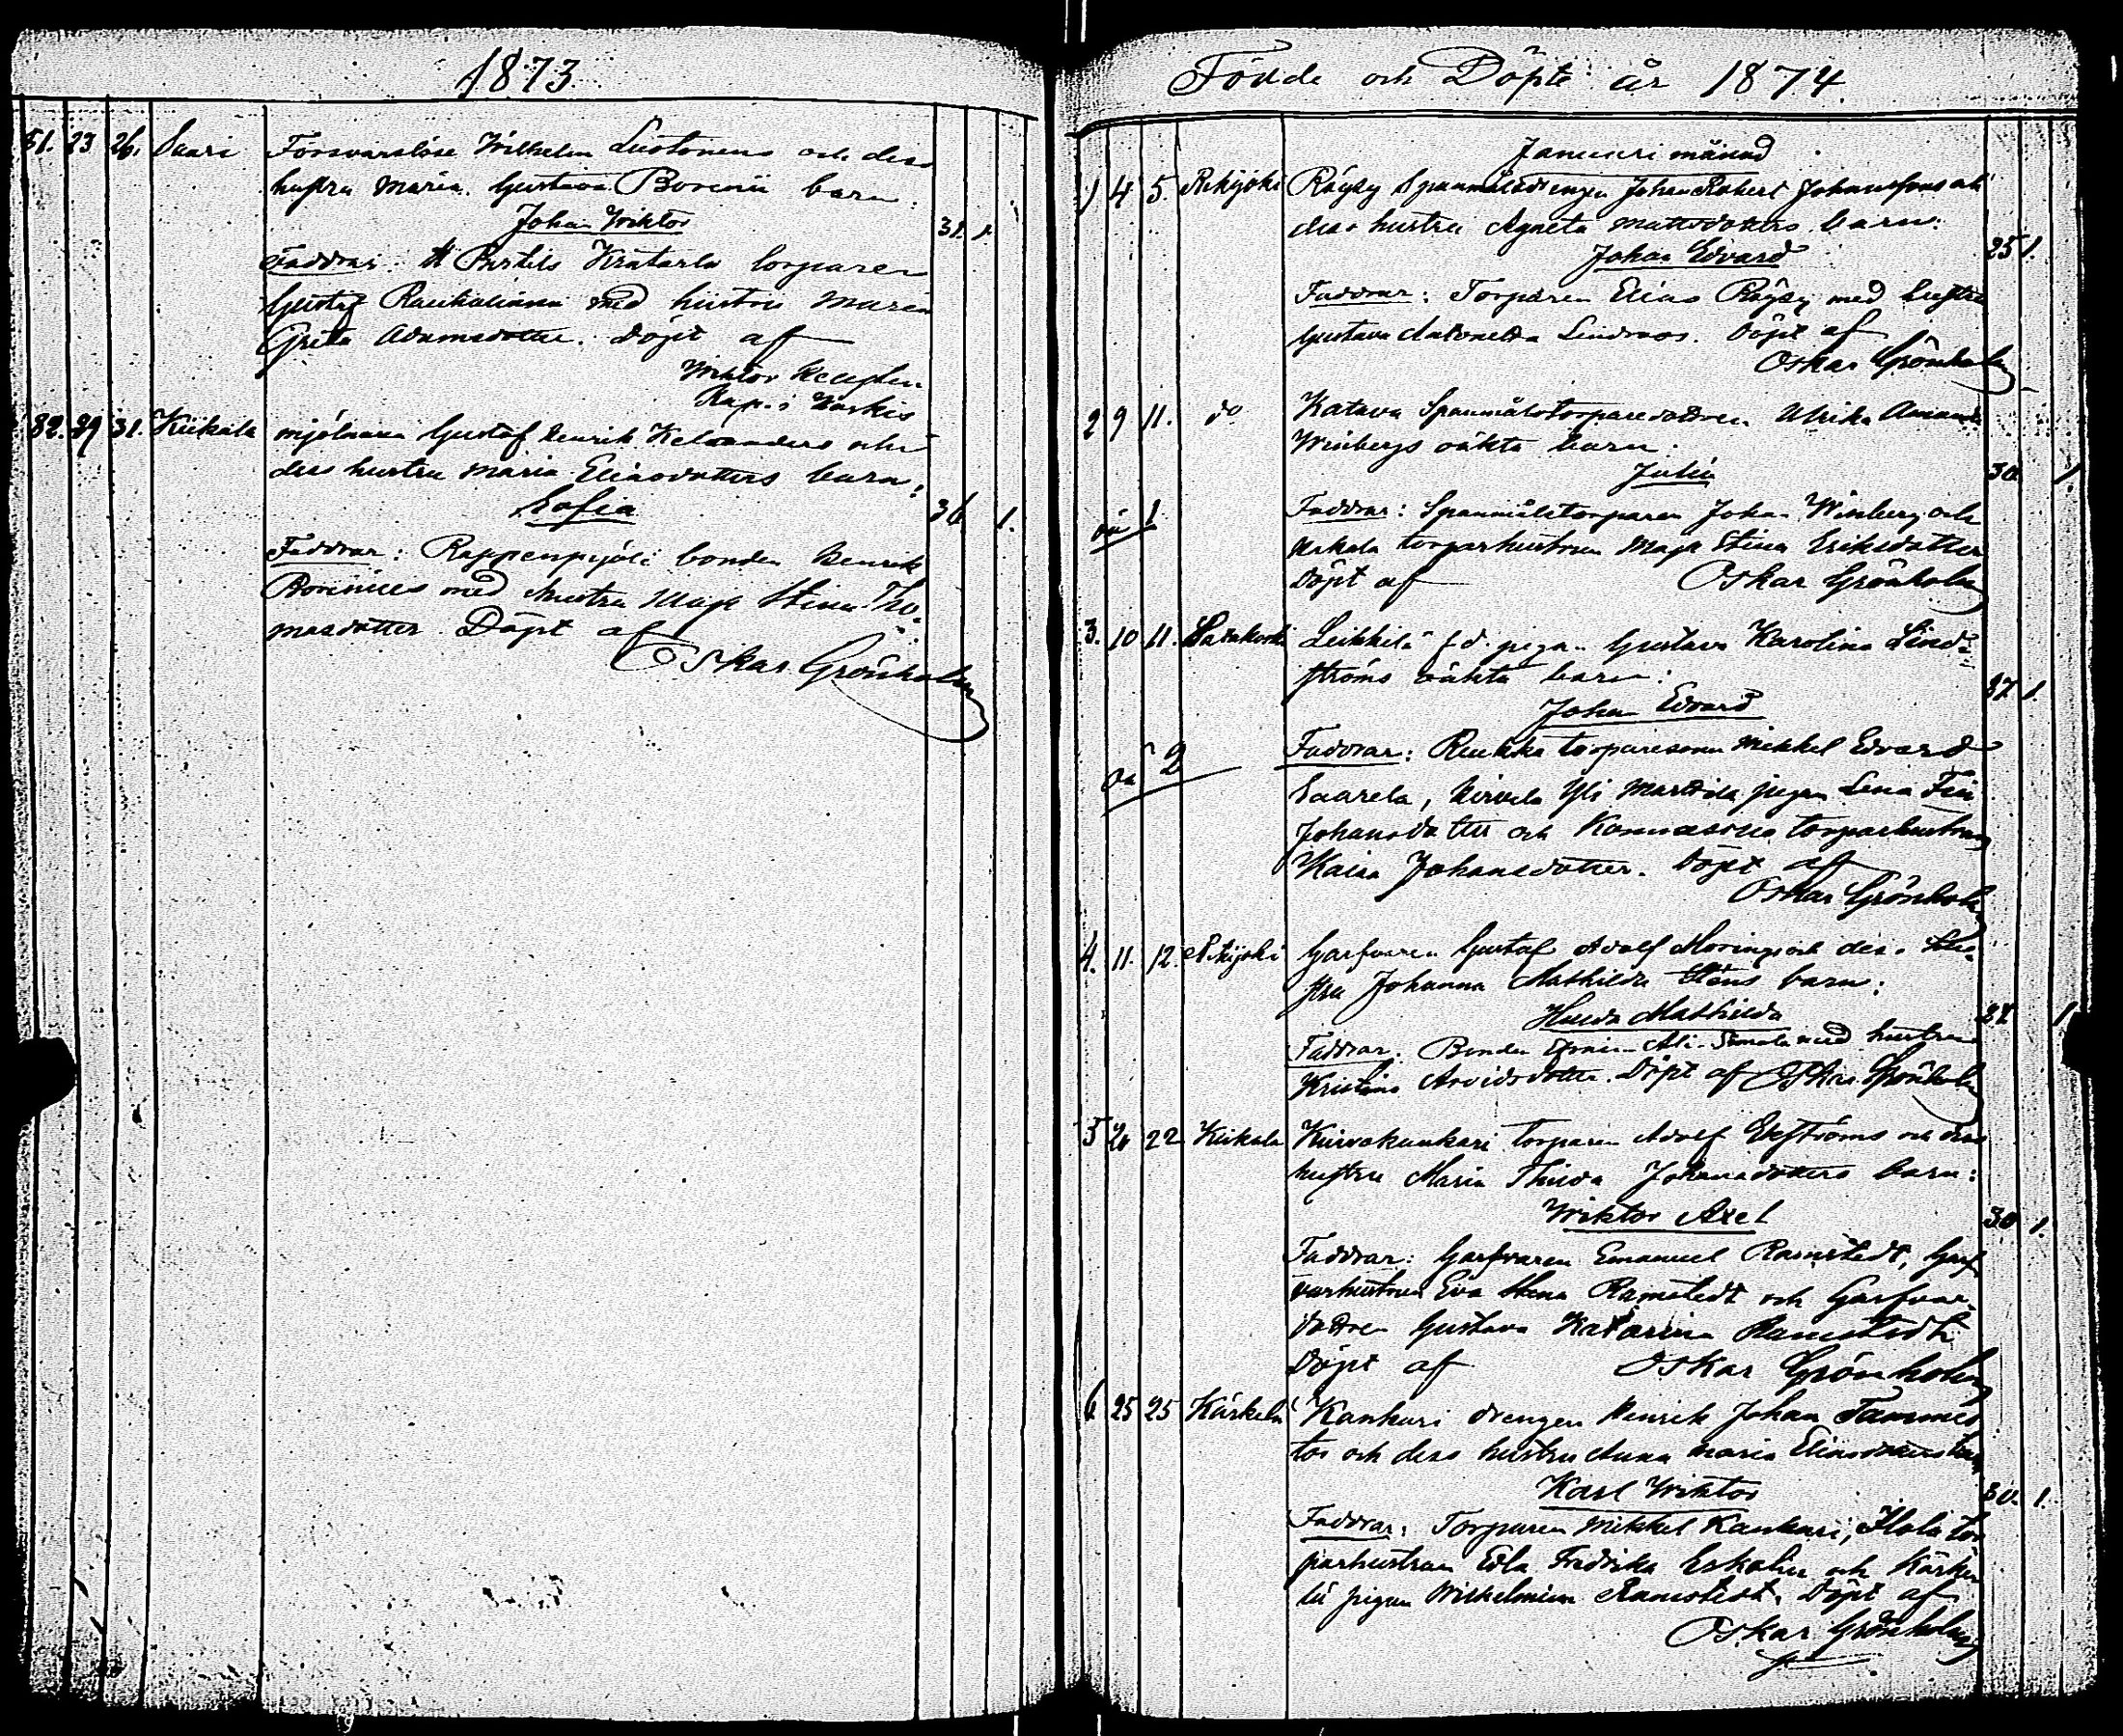 1873
81. 23 26. Saari Försvarslöse Wilhelm Luotonens och dess
hustru Maria Gustava Borenii barn:
Johan Wiktor 31. 1.
Faddrar: torparen
Gustaf med hustru Maria
Greta Adamsdotter. Döpt af
Wiktor
Kap. i
82. 29 31. Kiikala mjölnaren Gustaf Henrik och
dess hustru Maria Eliasdotters barn:
Sofia 36 1.
Faddrar: bonden Henrik
med hustru Maja Stina Tho-
masdotter. Döpt af
Oskar Grönholm
Födde och Döpte år 1874.
Januari månad
1 4 5. Rekijoki Räysy Spanmålsdrengen Johan Robert Johanssons och
dess hustru Agneta Mattsdotters barn:
Johan Edvard 25 1.
Faddrar: Torparen Elias Räysy med hustru
Gustava Lindroos. Döpt af
Oskar Grönholm
2 9 11. do Katava Spanmålstorparedottren Ulrika Amanda
Winbergs oäkta barn:
Julia 30. 1.
oä 1 Faddrar: Spanmålstorparen Johan Winberg och
torparhustrun Maja Stina Eriksdotter
Döpt af Oskar Grönholm
3. 10 11. Leikkilä f.d. pigan Gustava Karolina Lind-
ströms oäkta barn:
Johan Edvard 37 1.
oä 2 Faddrar: torparesonen Mikkel Edvard
Saarela, Yli pigan Lena
Johansdotter och torparhustrun
Kaisa Johansdotter. Döpt af
Oskar Grönholm
4. 11. 12. Rekijoki Garfvaren Gustaf Adolf Morings och dess hu-
stru Johanna Mathilda barn:
Hulda Mathilda 32 1
Faddrar: Bonden Ali-Simola med hustrun
Kristina Arvidsdotter. Döpt af Oskar Grönholm
5 20 22 Kiikala torparen Adolf Ekströms och dess
hustru Maria Johansdotters barn:
Wiktor Axel 30 1.
Faddrar: Garfvaren Emanuel Ramstedt, Garf-
varhustrun Eva Stina Ramstedt och Garfvar-
dottren Gustava Katarina Ramstedt.
Döpt af Oskar Grönholm
6 25 25 Kärkelä Kankari drengen Henrik Johan Tammis-
tos och dess hustru Anna Maria Eliasdotters barn
Karl Wiktor 30. 1.
Faddrar: Torparen Mikkel Kankari, tor-
parhustrun Edla Fredrika och Kärke-
lä pigan Wilhelmina Ramstedt. Döpt af
Oskar Grönholm